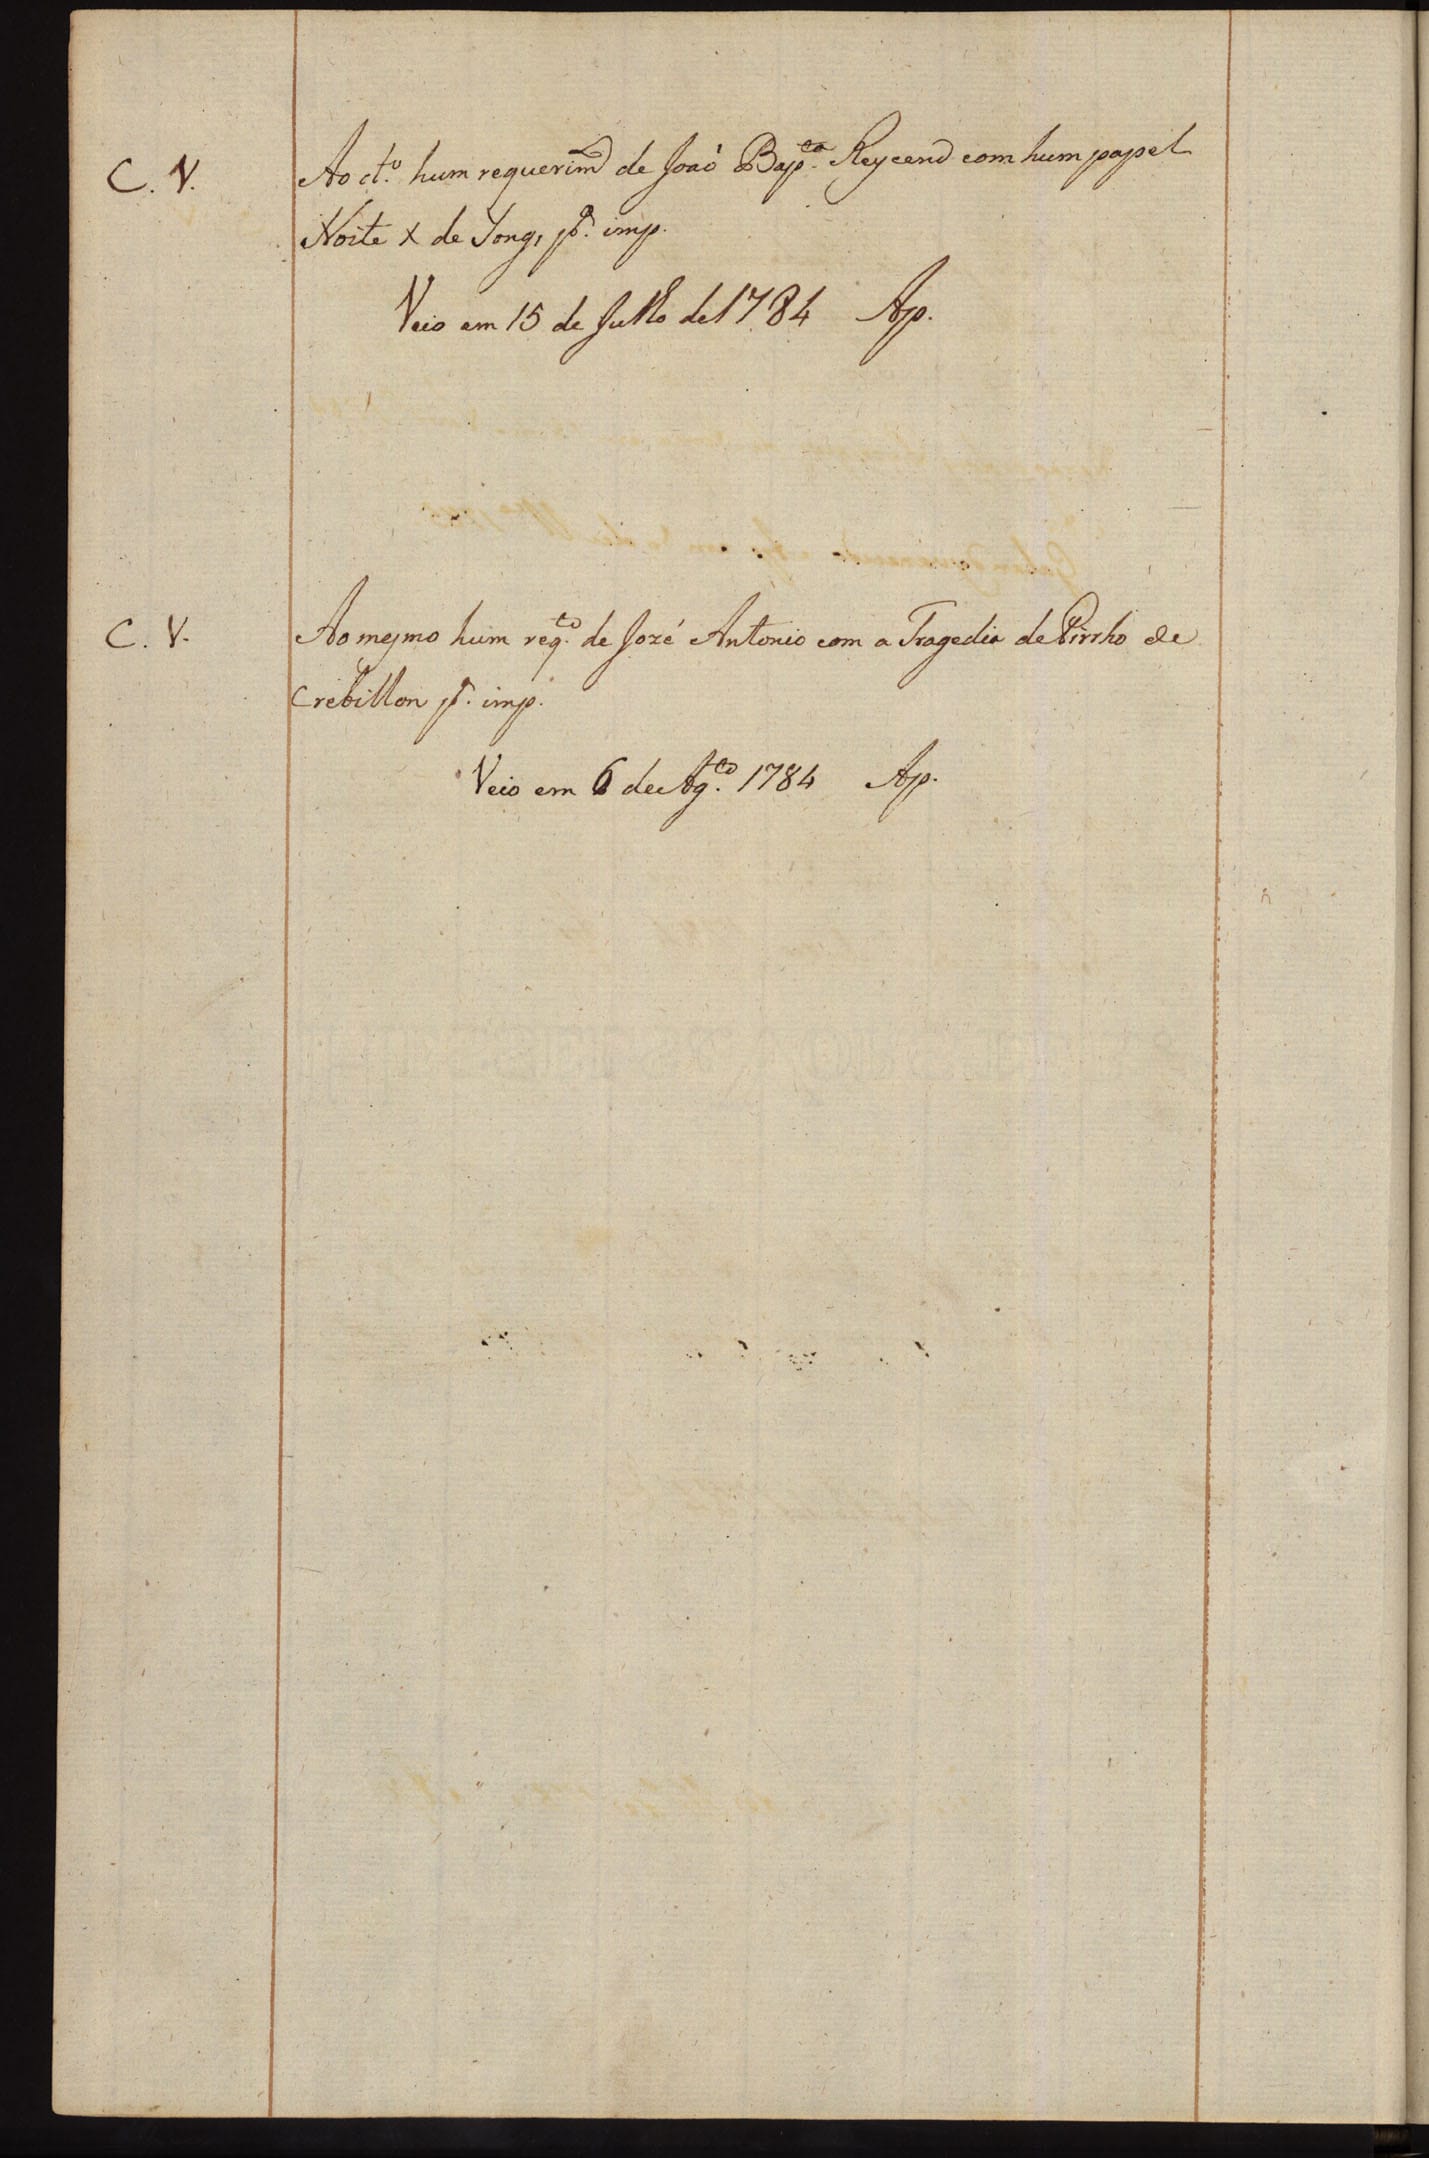 C. V.
Ao d.to hum requerim.to de Joaõ Bap.ta Reycend com hum papel
Noite X de Yong, p.a imp.
Veio em 15 de Julho de 1784 Ap.
C. V.
Ao mesmo hum req.to de Jozé Antonio com a Tragedia de Pirrho de
Crebillon p.a imp.
Veio em 6 de Ag.to 1784 Ap.